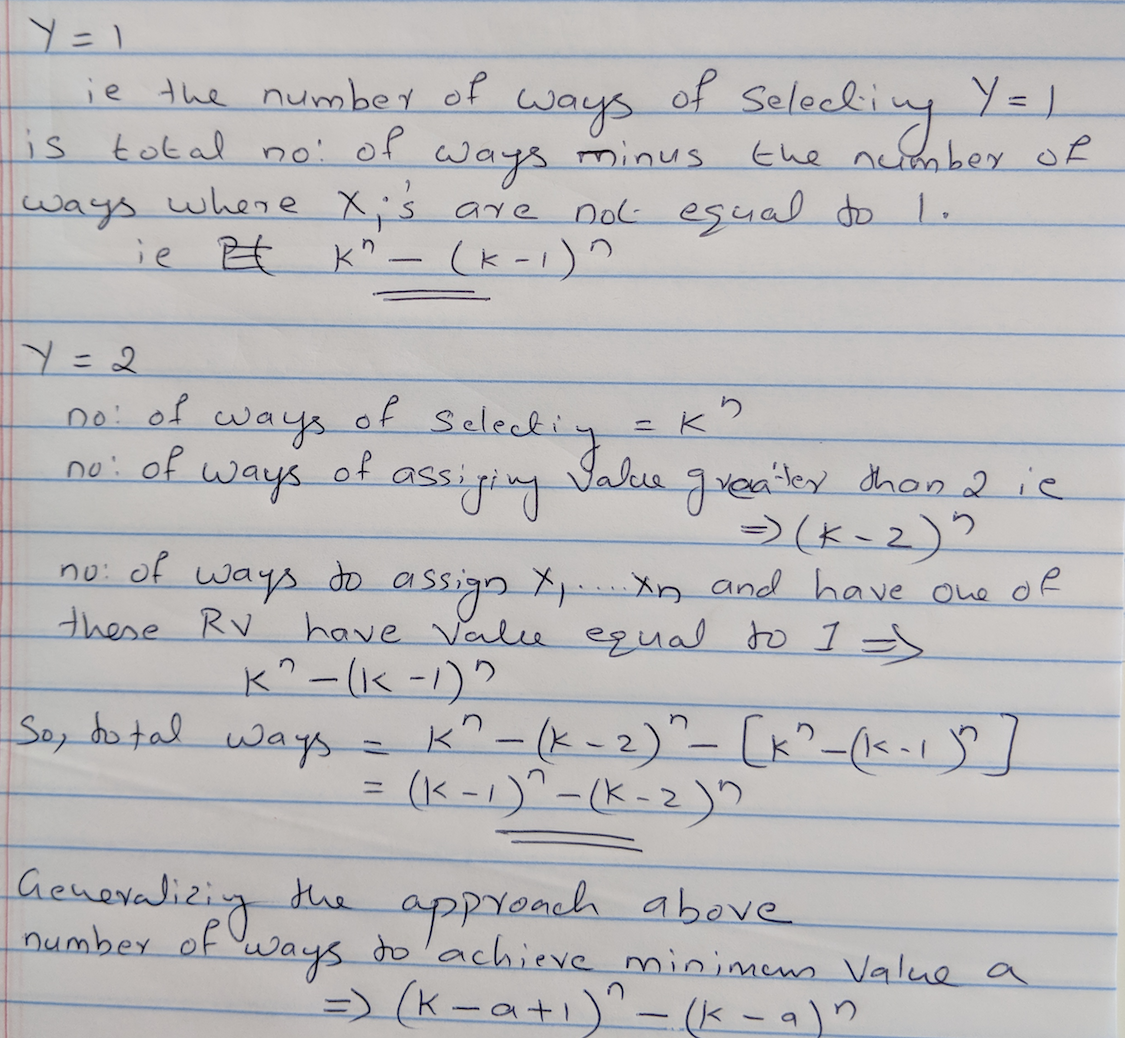 Y = 1
ie the number of ways of selecting Y = 1
is total no: of ways minus the number of
ways where Xi's are not equal to 1.
ie k^n - (k-1)^n
Y = 2
no: of ways of selectiy = k^n
no: of ways of assiging value greater than 2 ie
=> (k-2)^n
no: of ways to assign X1....Xn and have one of
these RV have value equal to 1 =>
k^n - (k-1)^n
So, total ways = k^n - (k-2)^n - [k^n - (k-1)^n]
= (k-1)^n - (k-2)^n
Generaliziy the approach above
number of ways to achieve minimum value a
=> (k-a+1)^n - (k-a)^n